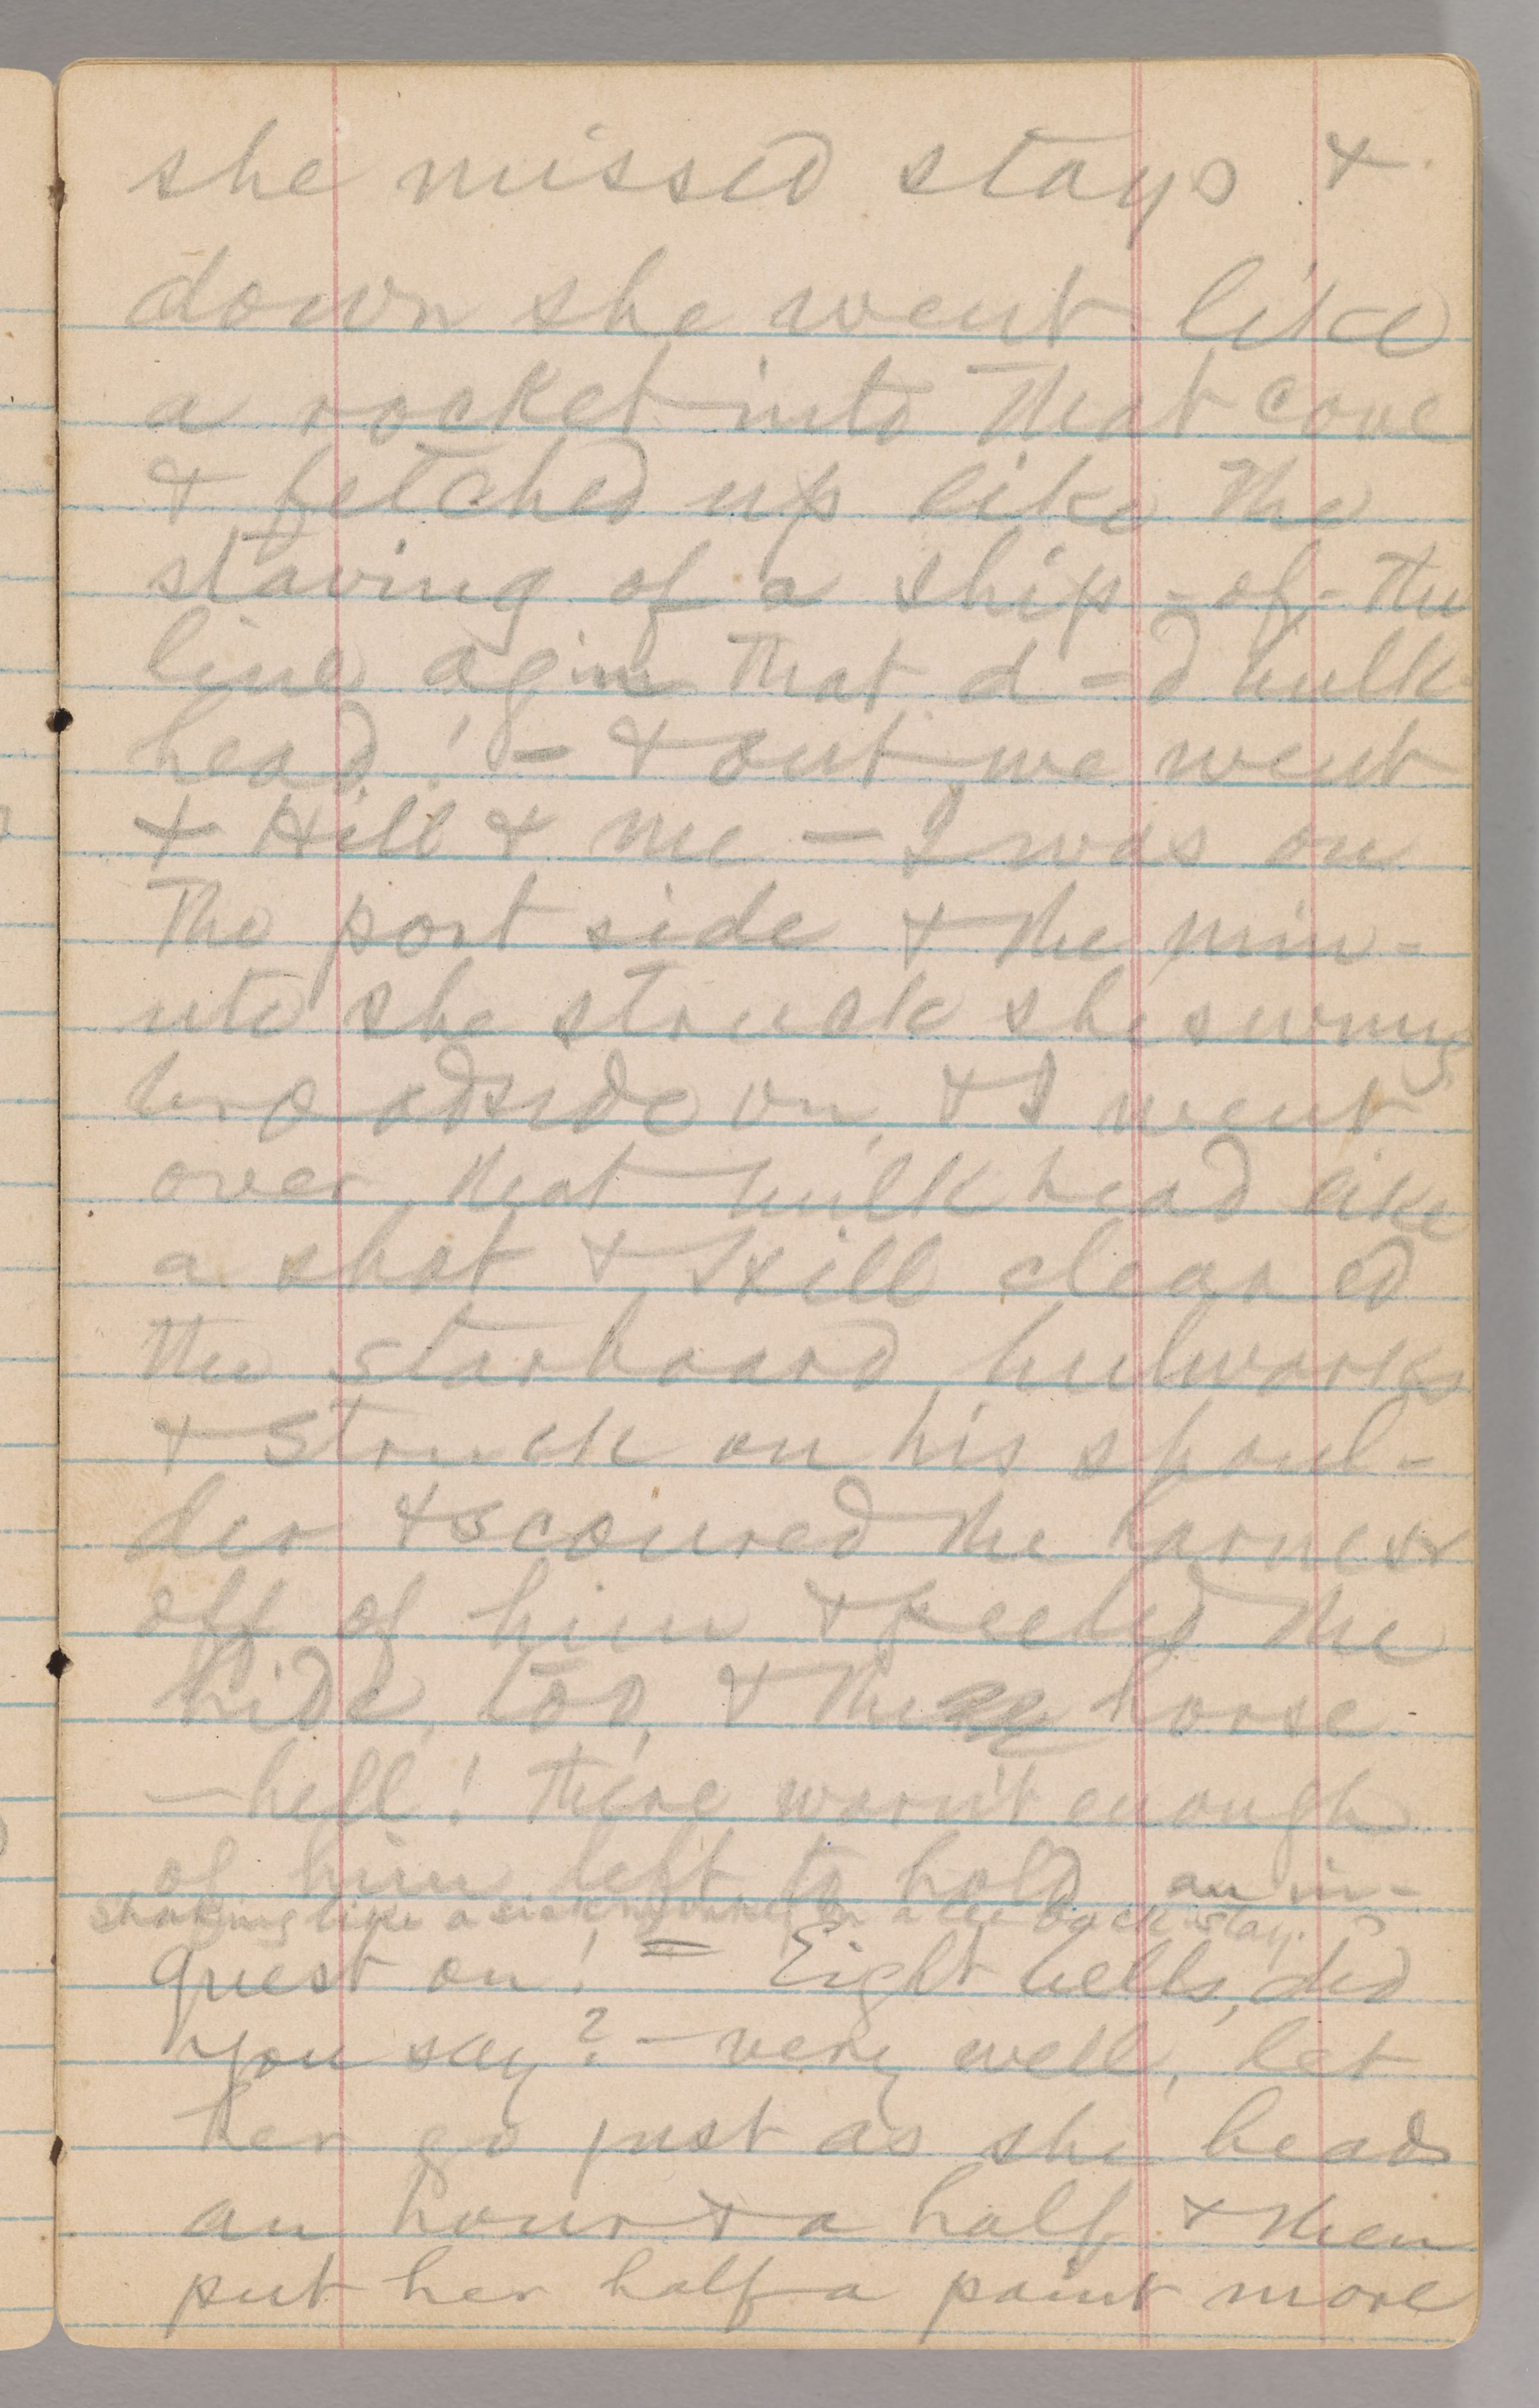 she missed stays &
down she went like
a rocket into that cove
& fetched up like the
staving of a ship-of-the
line agin that d—d bulk-
head! — & out we went
& Hill & me — I was on
the port side & the min-
ute she struck she swung
broadside on, & I went
over that bulkhead like
a shot & Hill cleared
the starboard bulwarks
& struck on his shoul-
der & scoured the harness
off of him & peeled the
hide, too, & the horse
—hell! there warn't enough
of him left to hold an in-
shaking like a sick monkey on a lee backstay.
quest on! = Eight bells, did
you say? — very well, let
her go just as she heads
an hour & a half & then
put her half a point more